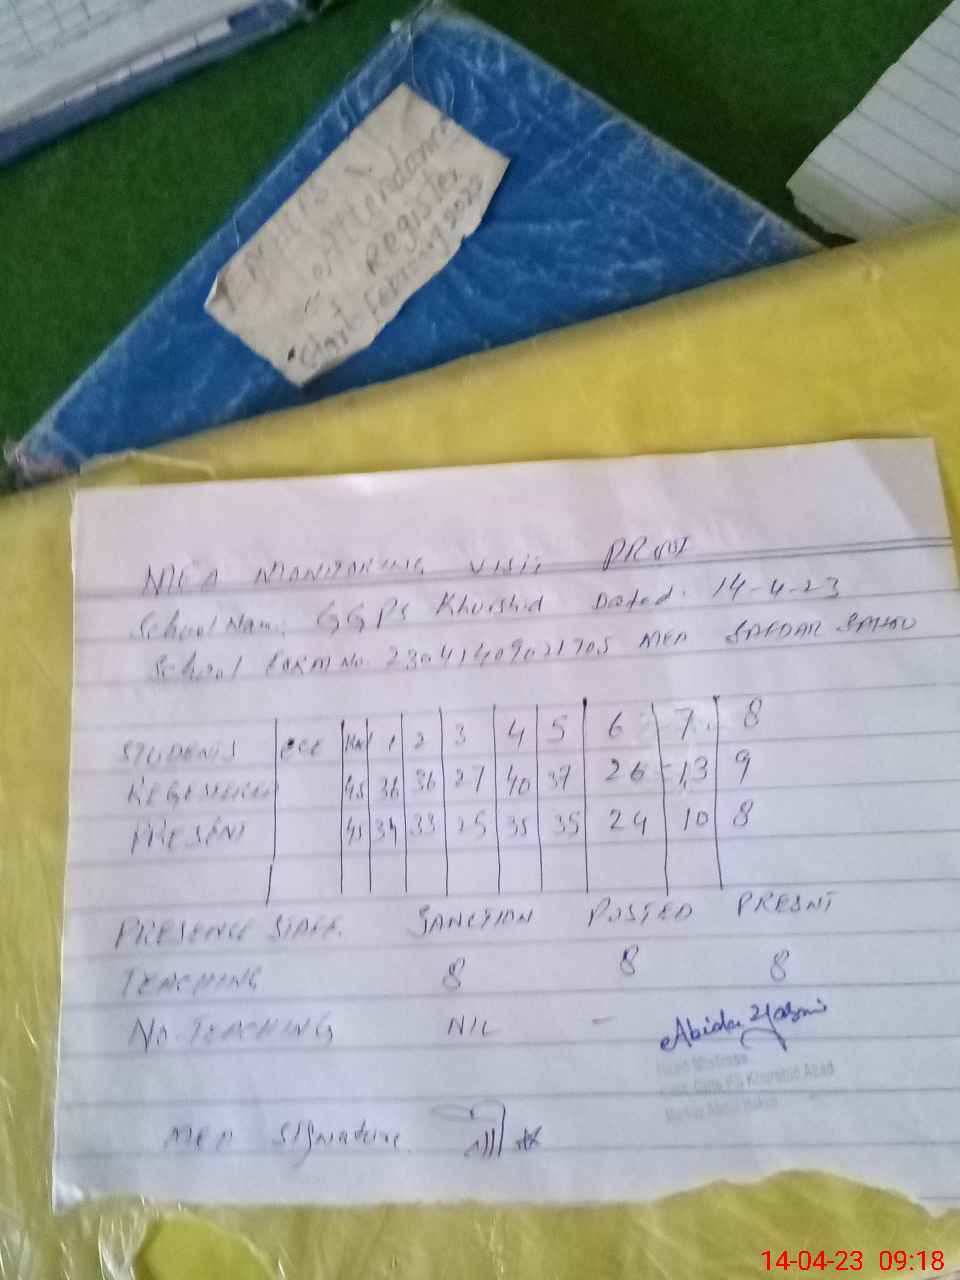 Attendance
Register
Start February 2022
MEA MONITORING VISIT PROOF
School Name: GGPS Khurshid Dated: 14-4-23
School FORM No. 23041409021705 MEA SAFDAR
STUDENTS ECE 1 2 3 4 5 6 7 8
REGESTERED 45 36 36 27 40 37 26 13 9
PRESENT 45 34 33 25 35 35 24 10 8
PRESENCE STAFF. SANCTION POSTED PRESNT
TEACHING 8 8 8
NO-TEACHING NIL -
Abida Yasmi
Head Mistress
Khurshid Abad
MEA Signature.
14-04-23 09:18